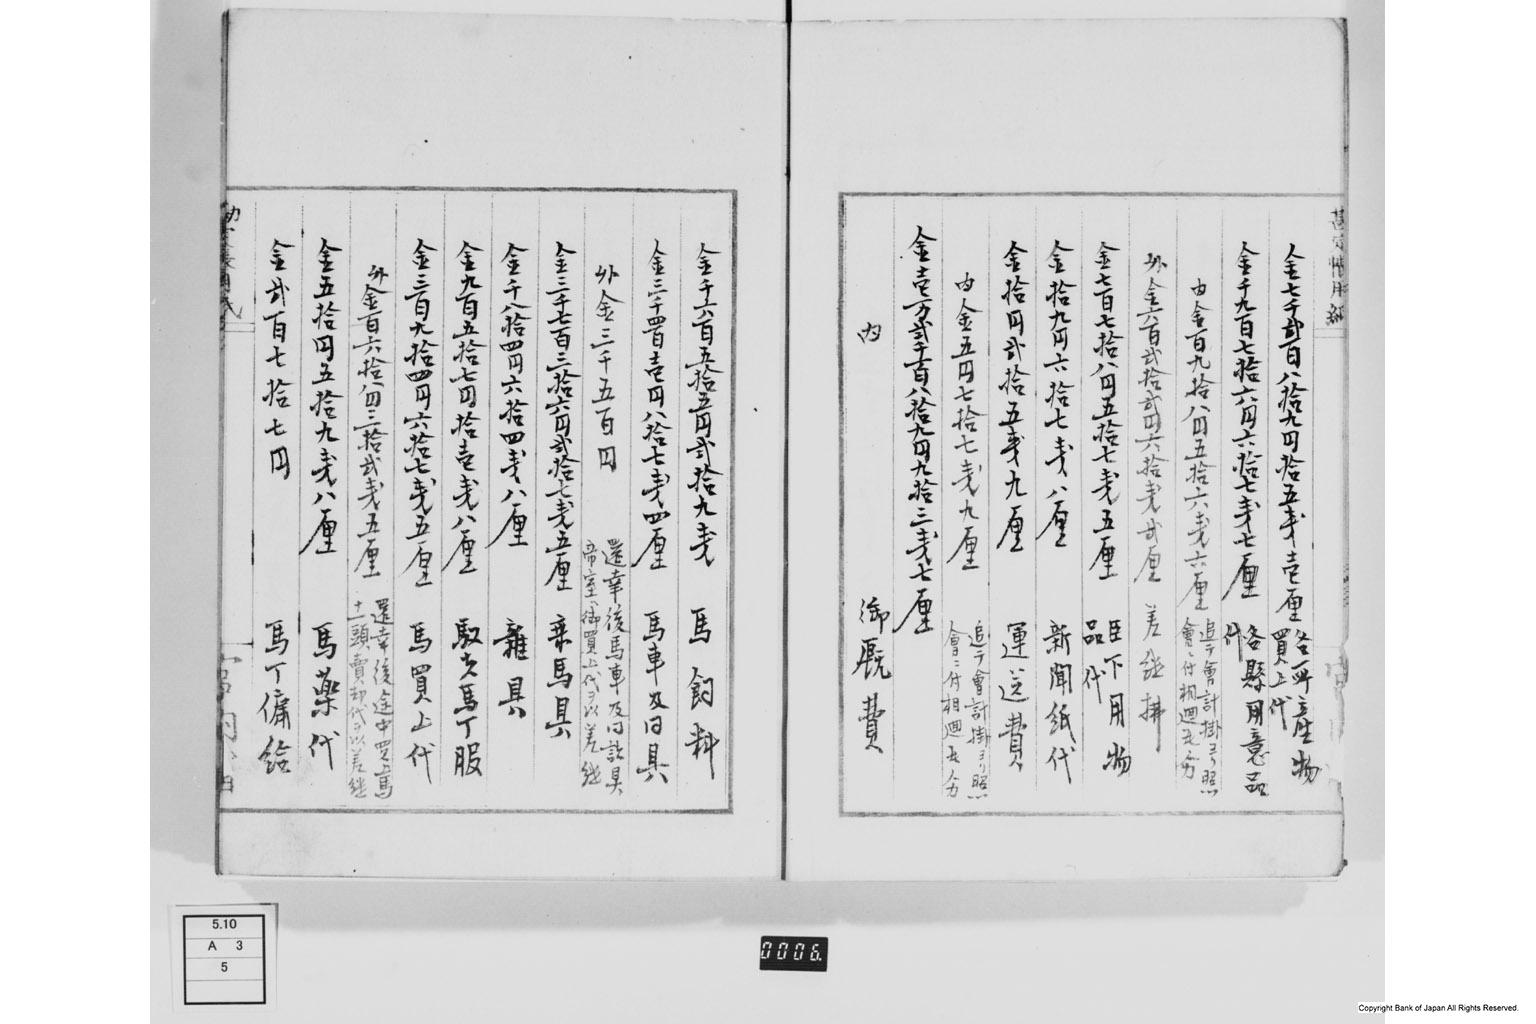 金七千弐百八拾九円拾五銭壱厘
各所産物
買上代
金千九百七拾六円六拾七銭七厘
各縣用意品
代
内金百九拾八円五拾六銭六厘
追テ會計掛ヨリ照
會ニ付相廻
外金六百弐拾弐円六拾銭弐厘 差継拂
金七百七拾八円五拾七銭五厘
臣下用物
品代
金拾九円六拾七銭八厘 新聞紙代
金拾円弐拾五銭九厘 運送費
内金五円七拾七銭九厘
追テ會計掛ヨリ照
會ニ付相廻
金壱万弐千百八拾九円九拾三銭七厘
内 御厩費
金千六百五拾五円弐拾九銭 馬飼料
金三千四百壱円八拾七銭四厘 馬車及日具
外金三千五百円
還幸後馬車及日諸具
帝室御買上代ヲ以差継
金三千七百三拾六円弐拾七銭五厘 乗馬具
金千八拾四円六拾四銭八厘 雜具
金九百五拾七円拾壱銭八厘 馭者馬丁服
金三百九拾四円六拾七銭五厘 馬買上代
外金百六拾八円三拾弐銭五厘
還幸後途中買上馬
十一頭賣却代ヲ以差継
金五拾円五拾九銭八厘 馬藥代
金弐百七拾七円 馬丁傭給
5.10
A 3
5
0006.
Copyright Bank of Japan All Rights Reserved.